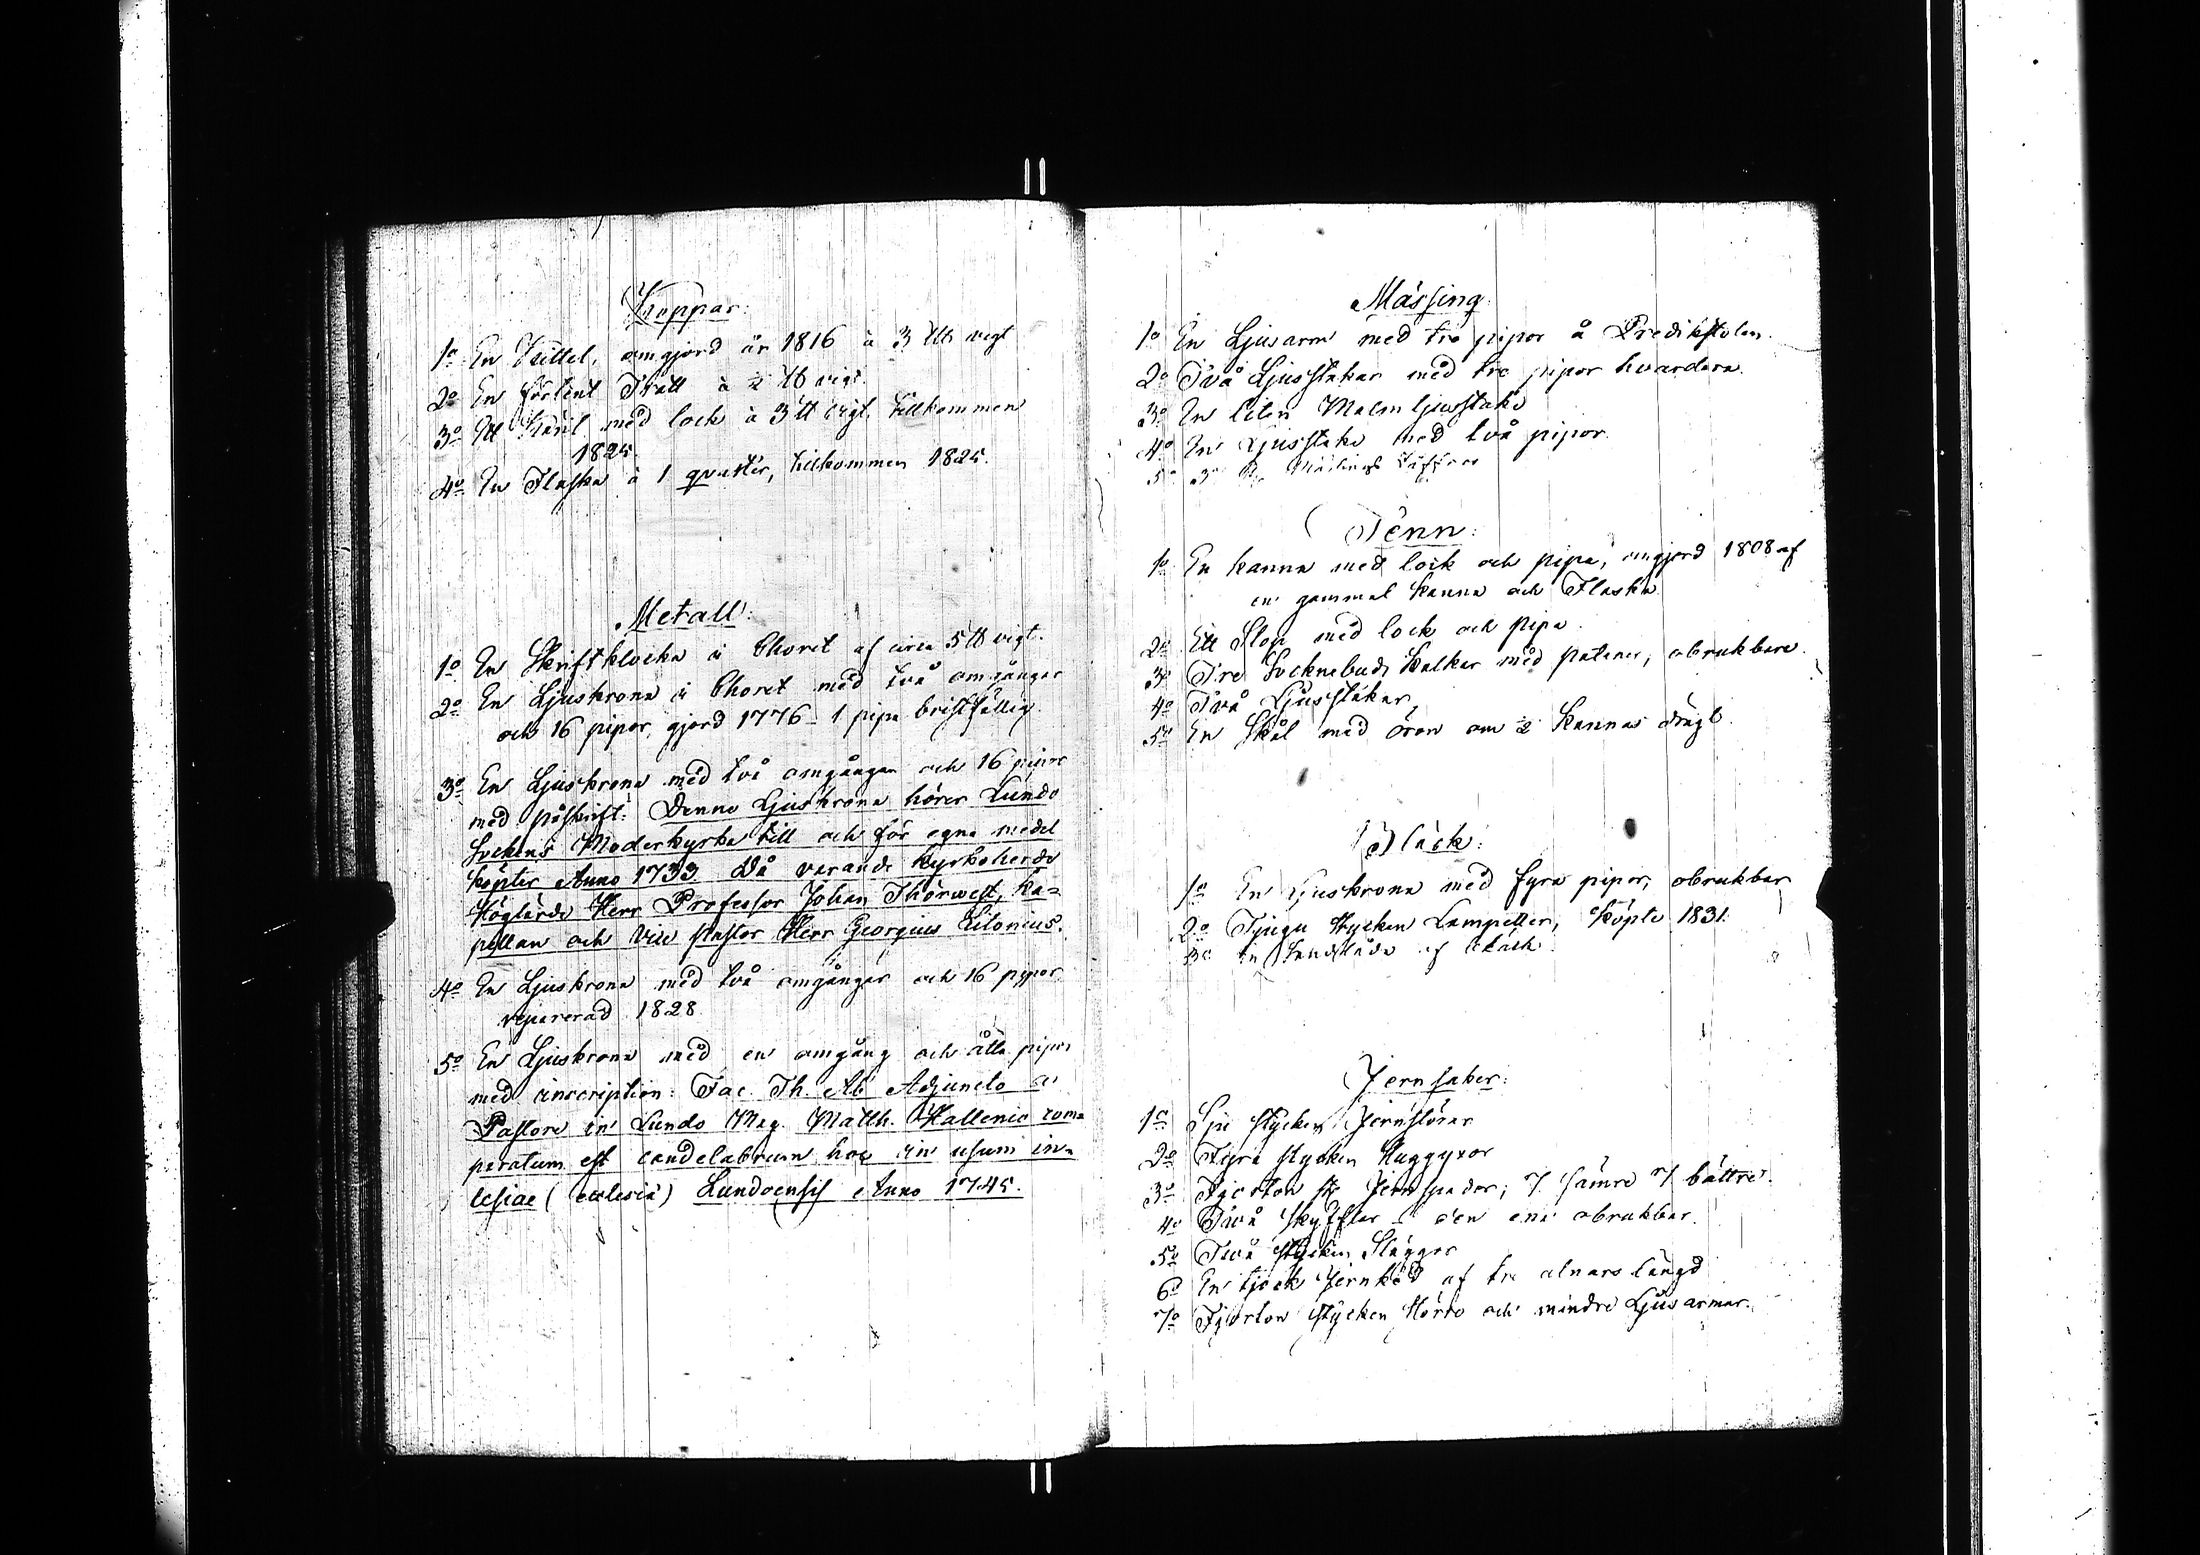 Koppar:
1o En Kittel, omgjord år 1816 à 3 ℔ vigt
2o En förtent Tratt à ½ ℔ vigt.
3o Ett Käril med lock à 3 ℔ vigt, tillkommen
1825.
4o En Flaska à 1 qvarter, tillkommen 1825.
Metall:
1o En Skriftklocka i Choret af circa 5 ℔ vigt.
2o En Ljuskrona i Choret med två omgångar
och 16 pipor, gjord 1776 - 1 pipa bristfällig.
3o En Ljuskrona med två omgångar och 16 pipor
med påskrift: Denne Ljuskrona hörer Lundo
Sockens Moderkyrka till och för egna medel
köpter Anno 1733 Då varande Kyrkoherde
Höglärde Herr Professor Johan Thorwest, Ka=
pellan och Vice pastor Herr Georgius Litonius.
4o En Ljuskrona med två omgångar och 16 pipor
repererad 1828.
5o En Ljuskrona med en omgång och åtta pipor
med inscription: Fac. Th. Ab. Adjuncto &
Pastore in Lundo Mag. Matth. Hallenio com=
peratum est candelabrum hoc in usum in=
lesiae (ecclesiæ) Lundoensis Anno 1745.
Mässing:
1o En Ljusarm med tre pipor å Predikstolen.
2o Två Ljusstakar med tre pipor hvardera.
3o En liten Malm ljusstake
4o En Ljusstake med två pipor.
5o 3 St. Mässings
Tenn:
1o En kanna med lock och pipa, omgjord 1808 af
en gammal Kanna och Flaska.
2o Ett Stop med lock och pipa.
3o Tre Socknebuds Kalkar med patener, obrukbara.
4o Två Ljusstakar,
5o En Skål med öron om ½ Kannas drägt.
Bläck:
1o En Ljuskrona med fyra pipor, obrukbar
2o Tjugu stycken Lampetter, köpte 1831.
3o En af bläck
Jernsaker:
1o Sju stycken Jernstörar
2o Fyra stycken Huggyxor
3o Fjorton st. Jernspador; 7 sämre 7 bättre.
4o Två Skyfflar - den ena obrukbar.
5o Två stycken Släggor
6o En tjock Jernked af tre alnars längd
7o Fjorton stycken större och mindre Ljusarmar.